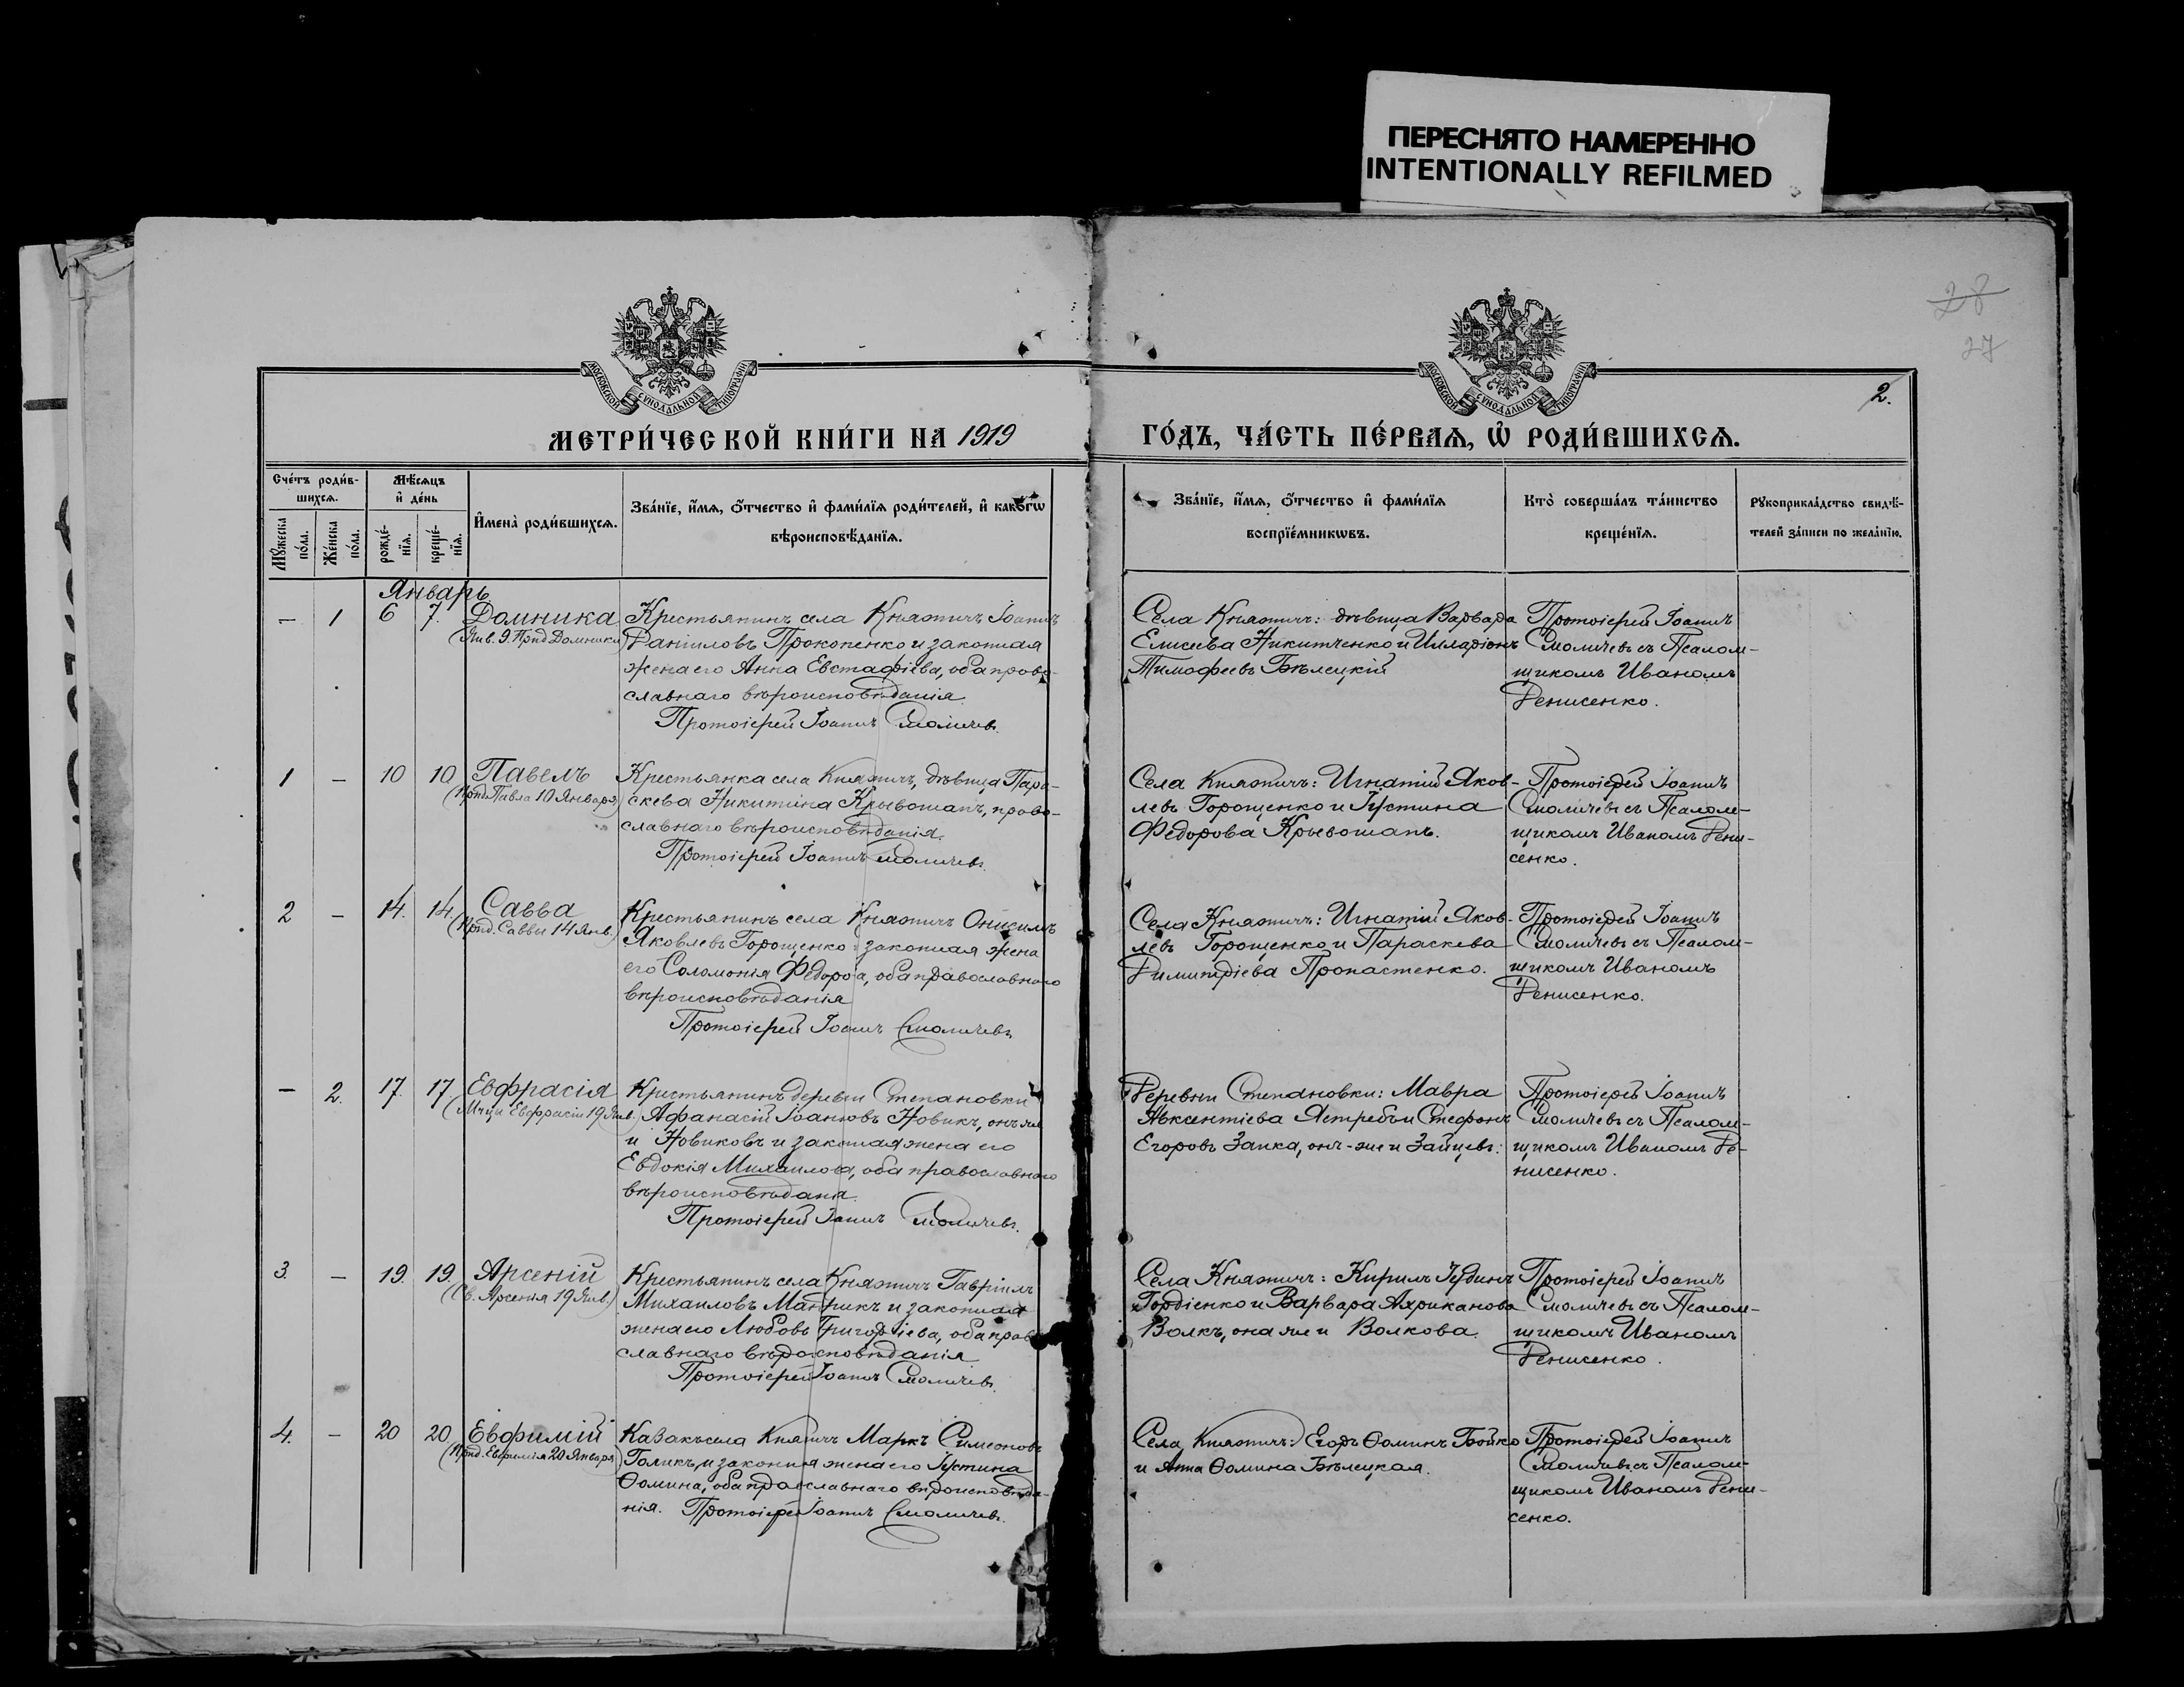 ПЕРЕСНЯТО НАМЕРЕННО
INTENTIONALLY REFILMED
28
27
2.
МОСКОВСКОЙ СѴНОДАЛЬНОЙ ТИПОГРАФІИ
МОСКОВСКОЙ СѴНОДАЛЬНОЙ ТИПОГРАФІИ
МЕТРИ́ЧЕСКОЙ КНИ́ГИ НА 1919
ГО́ДЪ, ЧА́СТЬ ПЕ́РВАЯ, Ѡ РОДИ́ВШИХСѦ.
Сче́тъ роди́в-
шихсѧ.
Мꙋ́жеска
по́ла.
Же́нска
по́ла.
Мѣ́сѧцъ
и҆ де́нь
рожде́-
нїѧ.
креще́-
нїѧ.
И҆мена̀ роди́вшихсѧ.
Зва́нїе, и҆́мѧ, ѻ҆́тчество и҆ фами́лїѧ роди́телей, и҆ како́гѡ
вѣроисповѣ́данїѧ.
Зва́нїе, и҆́мѧ, ѻ҆́тчество и҆ фами́лїѧ
воспрїе́мникѡвъ.
Кто̀ соверша́лъ та́инство
креще́нїѧ.
Рꙋкоприкла́дство свидѣ́-
телей за́писи по жела́нїю.
Январь
— 1 6 7. Домника
(Янв. 9. Прпд Домники)
Крестьянинъ села Княжичъ Іоаннъ
Даніиловъ Прокопенко и законная
жена его Анна Евстафіева, оба право-
славнаго вѣроисповѣданія.
Протоіерей Іоаннъ Смоличевъ.
Села Княжичъ: дѣвица Варвара
Елисеева Никитченко и Илларіонъ
Тимофеевъ Бѣлецкій
Протоіерей Іоаннъ
Смоличевъ съ Псалом-
щикомъ Иваномъ
Денисенко.
1 — 10 10 Павелъ
(Прпд. Павла 10 Января)
Крестьянка села Княжичъ, дѣвица Пара-
скева Никитина Крывошапъ, право-
славнаго вѣроисповѣданія.
Протоіерей Іоаннъ Смоличевъ.
Села Княжичъ: Игнатій Яков-
левъ Горощенко и Іустина
Федорова Крывошапъ.
Протоіерей Іоаннъ
Смоличевъ съ Псалом-
щикомъ Иваномъ Дени-
сенко.
2 — 14. 14. Савва
(Прпд. Саввы 14 Янв.)
Крестьянинъ села Княжичъ Онисимъ
Яковлевъ Горощенко и законная жена
его Соломонія Федорова, оба православнаго
вѣроисповѣданія
Протоіерей Іоаннъ Смоличевъ.
Села Княжичъ: Игнатій Яков-
левъ Горощенко и Параскева
Димитріева Пропастенко.
Протоіерей Іоаннъ
Смоличевъ съ Псалом-
щикомъ Иваномъ
Денисенко.
— 2. 17. 17 Евфрасія
(Мчцы Евфрасіи 19 Янв.)
Крестьянинъ деревни Степановки
Афанасій Іоанновъ Новикъ, онъ же
и Новиковъ и законная жена его
Евдокія Михаилова, оба православнаго
вѣроисповѣданія.
Протоіерей Іоаннъ Смоличевъ.
Деревни Степановки: Мавра
Авксентіева Ястребъ и Стефанъ
Егоровъ Заика, онъ-же и Зайцевъ.
Протоіерей Іоаннъ
Смоличевъ съ Псалом-
щикомъ Иваномъ Де-
нисенко.
3. — 19. 19. Арсеній
(Св. Арсенія 19 Янв.)
Крестьянинъ села Княжичъ Гавріилъ
Михаиловъ Мантрикъ и законная
жена его Любовь Григоріева, оба право-
славнаго вѣроисповѣданія
Протоіерей Іоаннъ Смоличевъ.
Села Княжичъ: Кирилъ
Гордіенко и Варвара Ахриканова
Волкъ, она же и Волкова.
Протоіерей Іоаннъ
Смоличевъ съ Псалом-
щикомъ Иваномъ
Денисенко.
4. — 20 20 Евфимій
(Прпд. Евфимія 20 Января)
Казакъ села Княжичъ Маркъ Симеоновъ
Голикъ, и законная жена его Іустина
Ѳомина, оба православнаго вѣроисповѣда-
нія. Протоіерей Іоаннъ Смоличевъ.
Села Княжичъ: Егоръ Ѳоминъ Бойко
и Анна Ѳомина Бѣлецкая.
Протоіерей Іоаннъ
Смоличевъ съ Псалом-
щикомъ Иваномъ Дени-
сенко.